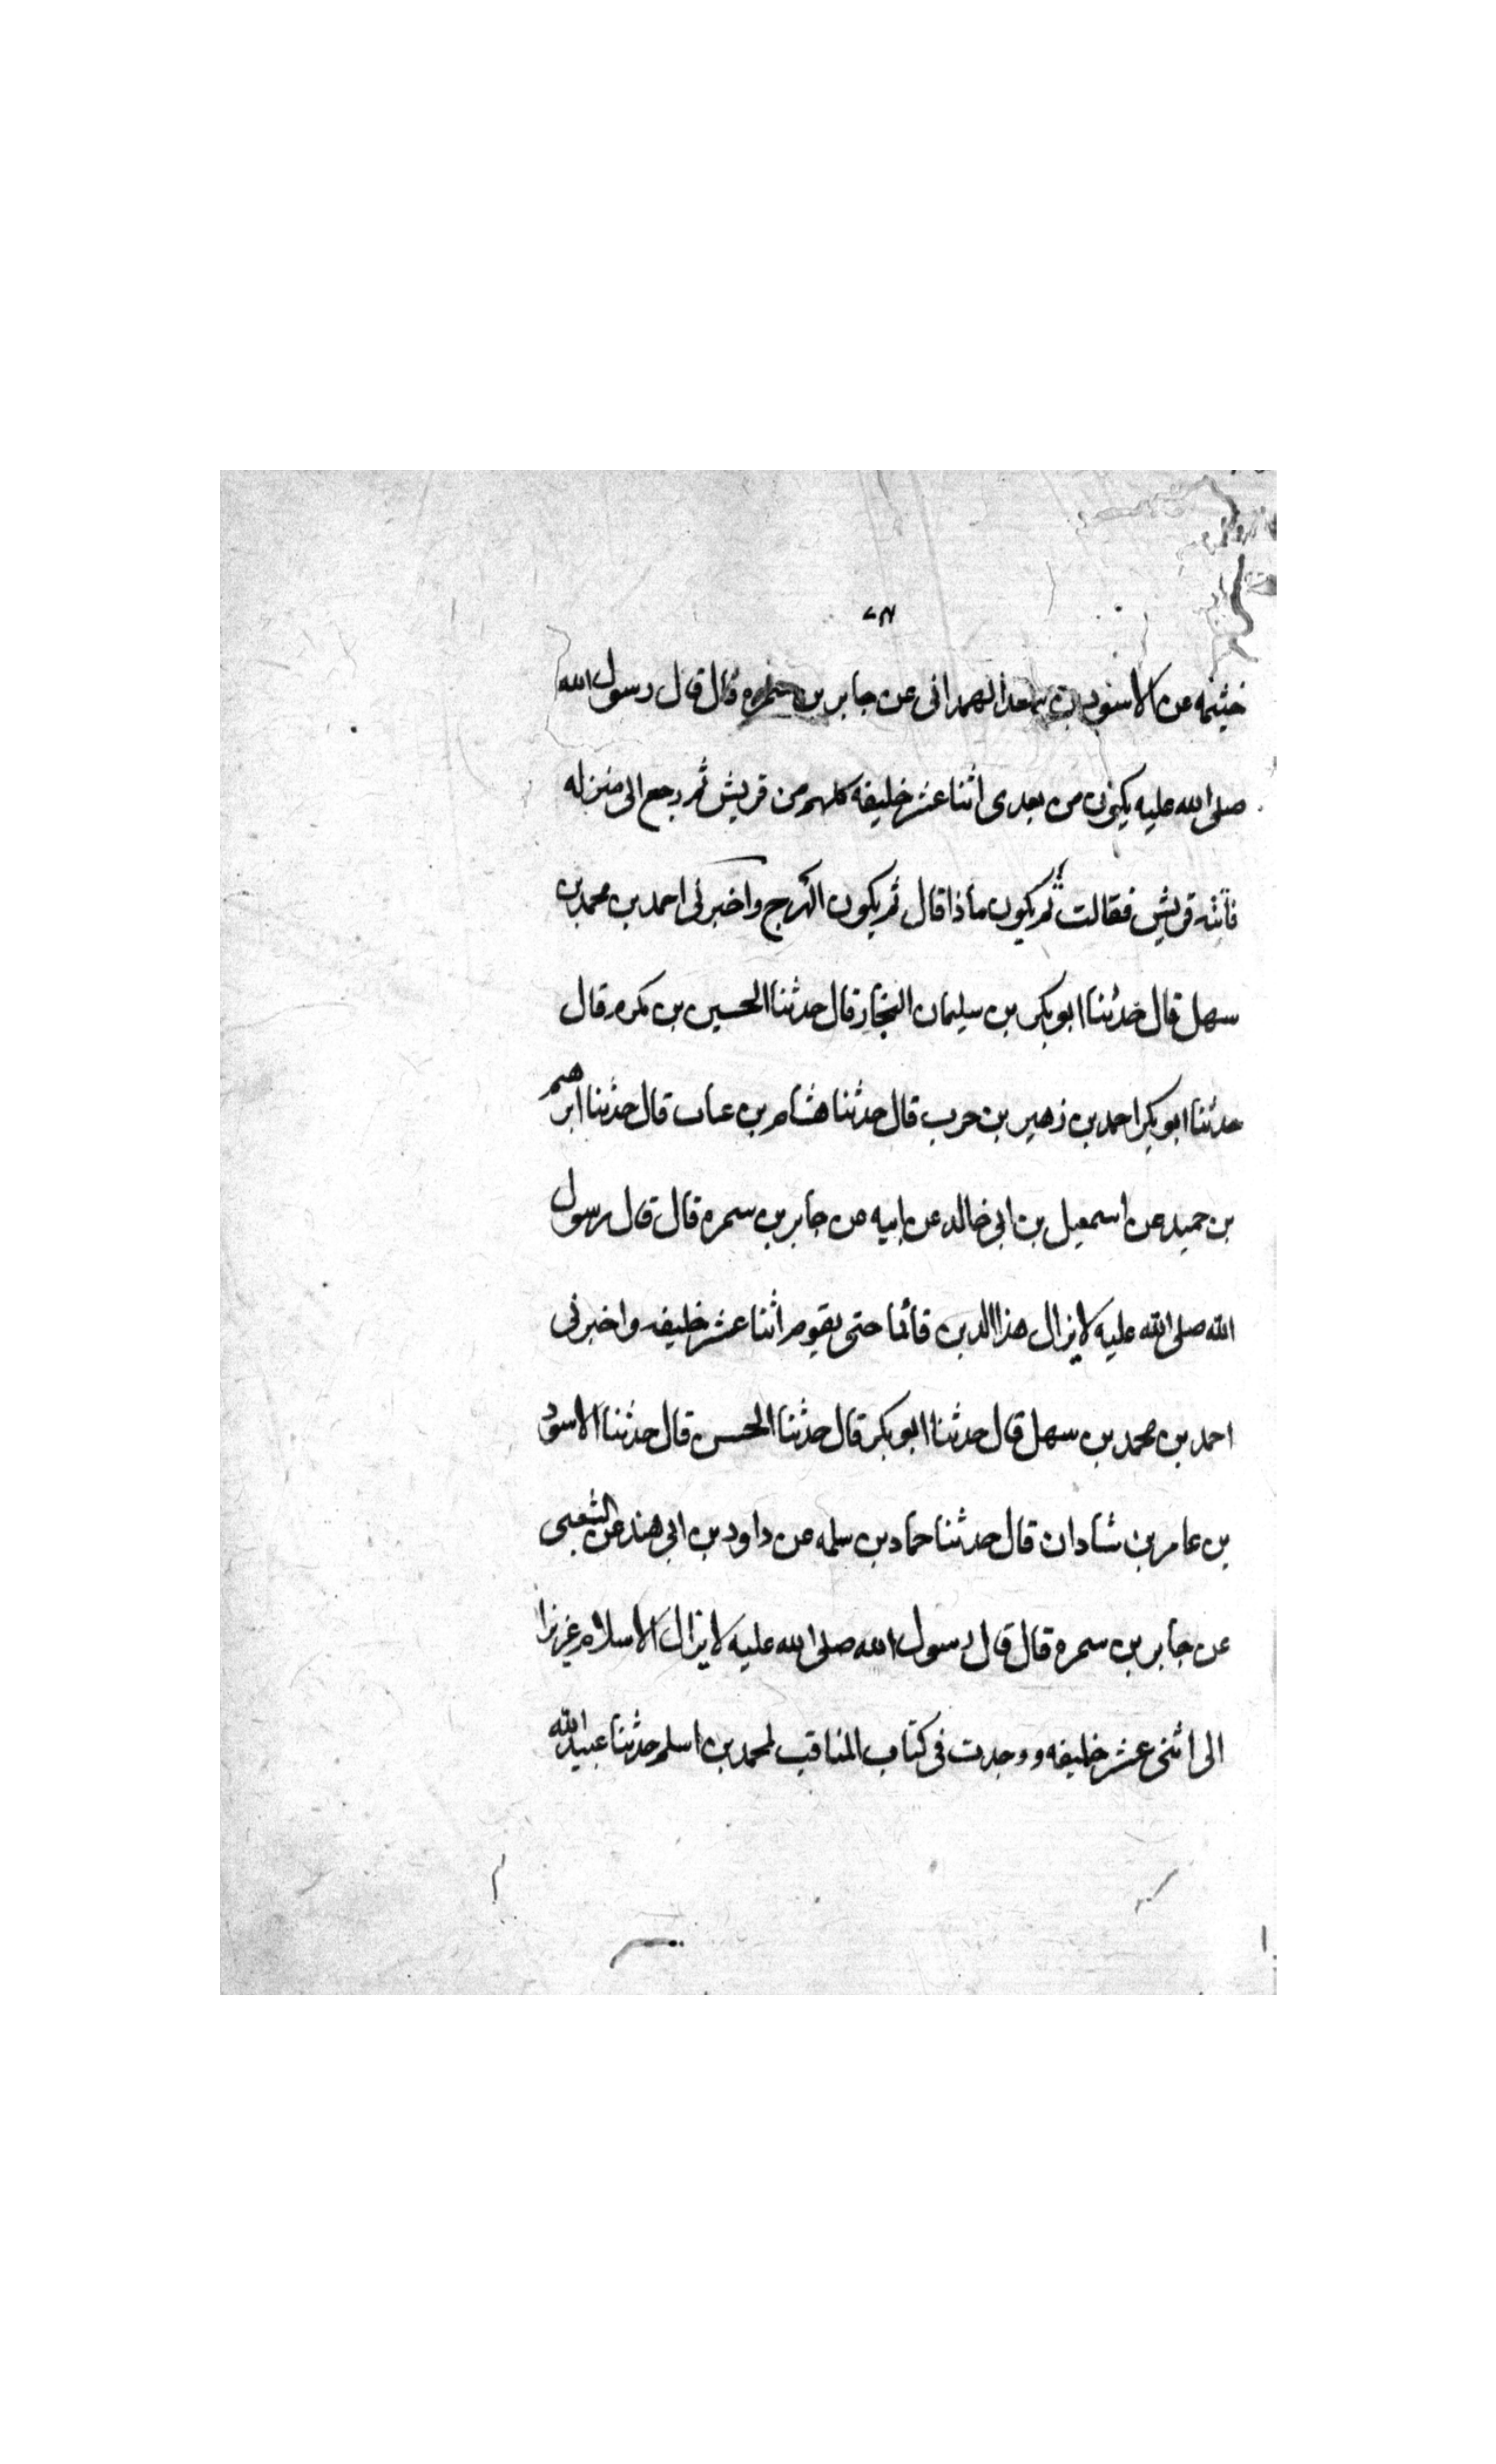 خثيمه عن الاسود بن سعد الهمدانى عن جابر بن سمره قال قال رسول الله
صلى الله عليه يكون من بعدى اثنا عشر خليفه كلهم من قريش ثم رجع الى منزله
فاتته قريش فقالت ثم يكون ماذا قال ثم يكون الهرج واخبرنى احمد بن محمد بن
سهل قال حدثنا ابو بكر بن سليمان النجار قال حدثنا الحسين بن مكرم قال
حدثنا ابو بكر احمد بن زهير بن حرب قال حدثنا هشام بن عباب قال حدثنا ابرهيم
بن حميد عن اسمعيل بن ابى خالد عن ابيه عن جابر بن سمره قال قال رسول
الله صلى الله عليه لا يزال هذا الدين قائما حتى يقوم اثنا عشر خليفه واخبرنى
احمد بن محمد بن سهل قال حدثنا ابو بكر قال حدثنا الحسن قال حدثنا الاسود
بن عامر بن شاذان قال حدثنا حماد بن سلمه عن داود بن ابى هند عن الشعبى
عن جابر بن سمره قال قال رسول الله صلى الله عليه لا يزال الاسلام عزيزا
الى اثنى عشر خليفه ووجدت فى كتاب المناقب لمحمد بن اسلم حدثنا عبيد الله